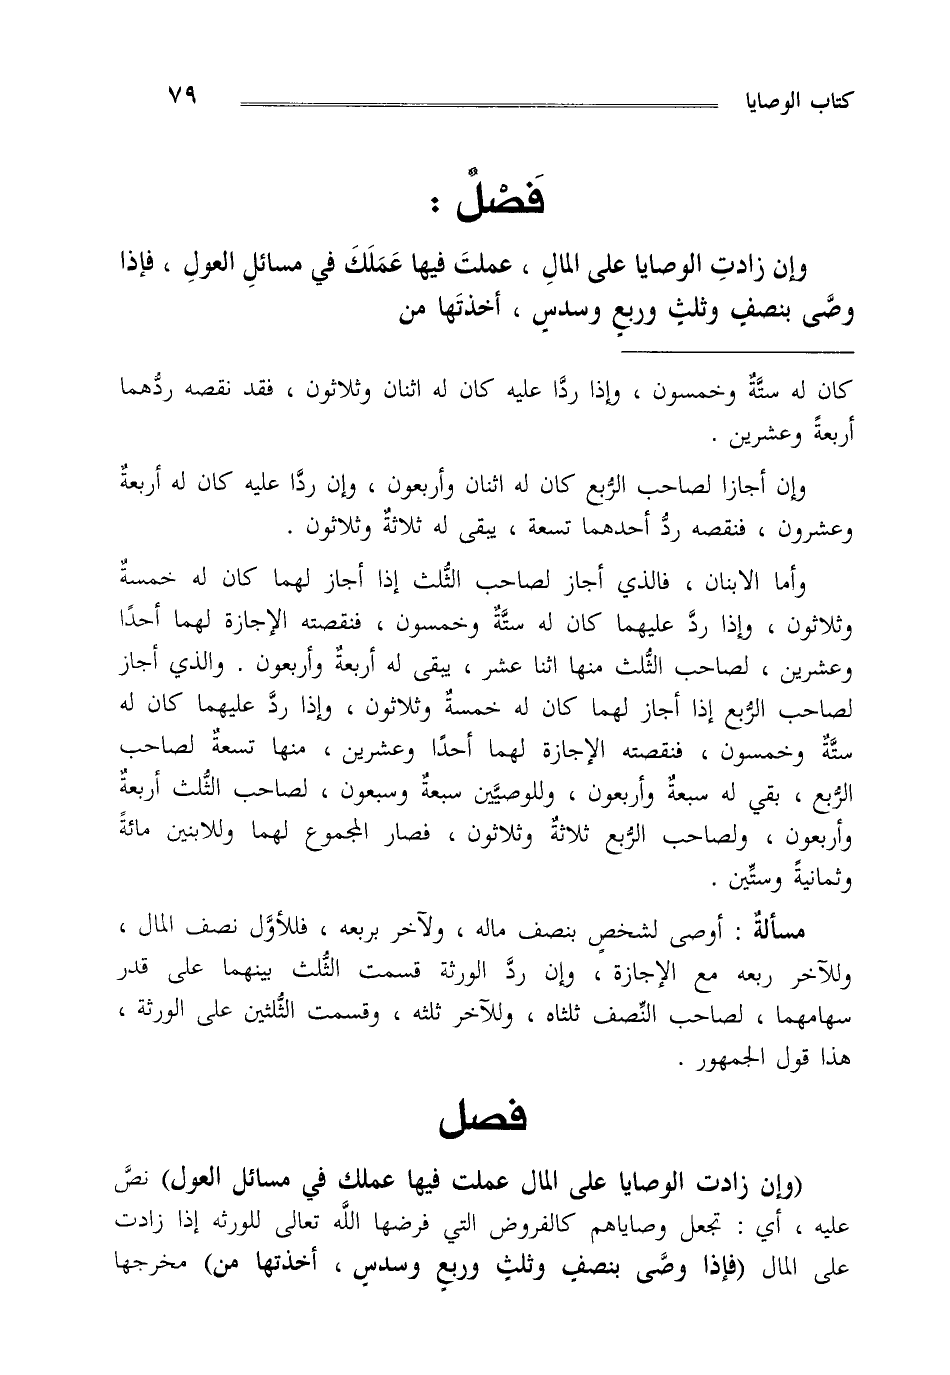 كتاب الوصايا ٧٩
فَصْلٌ :
وإن زادتِ الوصايا على المالِ ، عملتَ فيها عَمَلَكَ في مسائلِ العولِ ، فإذا
وصَّى بنصفٍ وثلثٍ وربعٍ وسدسٍ ، أخذتَها من
كان له ستَّةٌ وخمسون ، وإذا ردَّا عليه كان له اثنان وثلاثون ، فقد نقصه ردُّهما
أربعةً وعشرين .
وإن أجازا لصاحب الرُّبع كان له اثنان وأربعون ، وإن ردَّا عليه كان له أربعةٌ
وعشرون ، فنقصه ردُّ أحدهما تسعة ، يبقى له ثلاثةٌ وثلاثون .
وأما الابنان ، فالذي أجاز لصاحب الثُّلث إذا أجاز لهما كان له خمسةٌ
وثلاثون ، وإذا ردَّ عليهما كان له ستَّةٌ وخمسون ، فنقصته الإجازة لهما أحدًا
وعشرين ، لصاحب الثُّلث منها اثنا عشر ، يبقى له أربعةٌ وأربعون . والذي أجاز
لصاحب الرُّبع إذا أجاز لهما كان له خمسةٌ وثلاثون ، وإذا ردَّ عليهما كان له
ستَّةٌ وخمسون ، فنقصته الإجازة لهما أحدًا وعشرين ، منها تسعةٌ لصاحب
الرُّبع ، بقي له سبعةٌ وأربعون ، وللوصيَّين سبعةٌ وسبعون ، لصاحب الثُّلث أربعةٌ
وأربعون ، ولصاحب الرُّبع ثلاثةٌ وثلاثون ، فصار المجموع لهما وللابنين مائةً
وثمانيةً وستِّين .
مسألةٌ : أوصى لشخصٍ بنصف ماله ، ولآخر بربعه ، فللأوَّل نصف المال ،
وللآخر ربعه مع الإجازة ، وإن ردَّ الورثة قسمت الثُّلث بينهما على قدر
سهامهما ، لصاحب النِّصف ثلثاه ، وللآخر ثلثه ، وقسمت الثُّلثين على الورثة ،
هذا قول الجمهور .
فصل
(وإن زادت الوصايا على المال عملت فيها عملك في مسائل العول) نصَّ
عليه ، أي : تجعل وصاياهم كالفروض التي فرضها اللَّه تعالى للورثه إذا زادت
على المال (فإذا وصَّى بنصفٍ وثلثٍ وربعٍ وسدسٍ ، أخذتها من) مخرجها